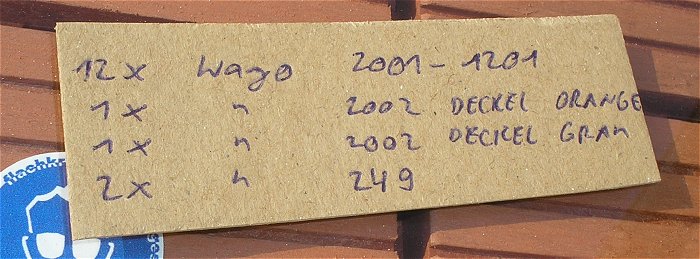 12 x Wago 2001-1201
1 x " 2002 DECKEL ORANGE
1 x " 2002 DECKEL GRAU
2 x " 249
flachk